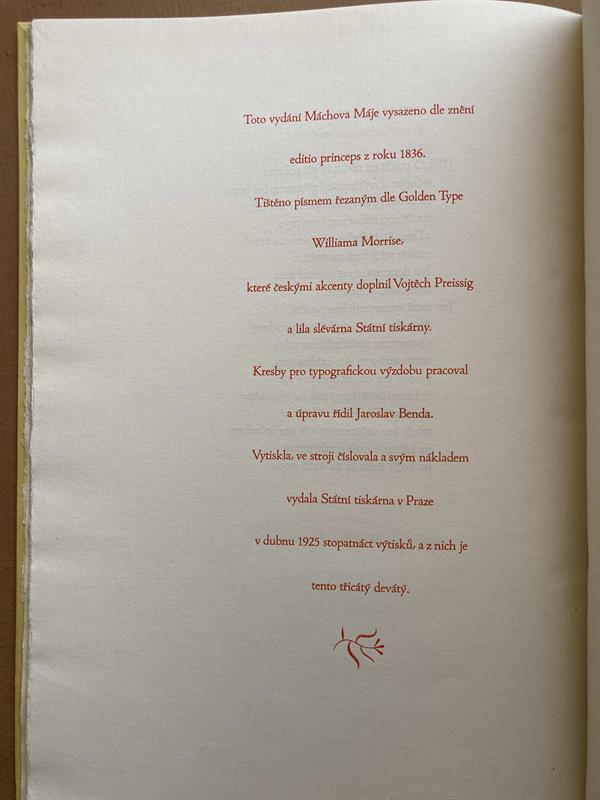 Toto vydání Máchova Máje vysazeno dle znění
editio princeps z roku 1836.
Tištěno písmem řezaným dle Golden Type
Williama Morrise,
které českými akcenty doplnil Vojtěch Preissig
a lila slévárna Státní tiskárny.
Kresby pro typografickou výzdobu pracoval
a úpravu řídil Jaroslav Benda.
Vytiskla, ve stroji číslovala a svým nákladem
vydala Státní tiskárna v Praze
v dubnu 1925 stopatnáct výtisků, a z nich je
tento třicátý devátý.